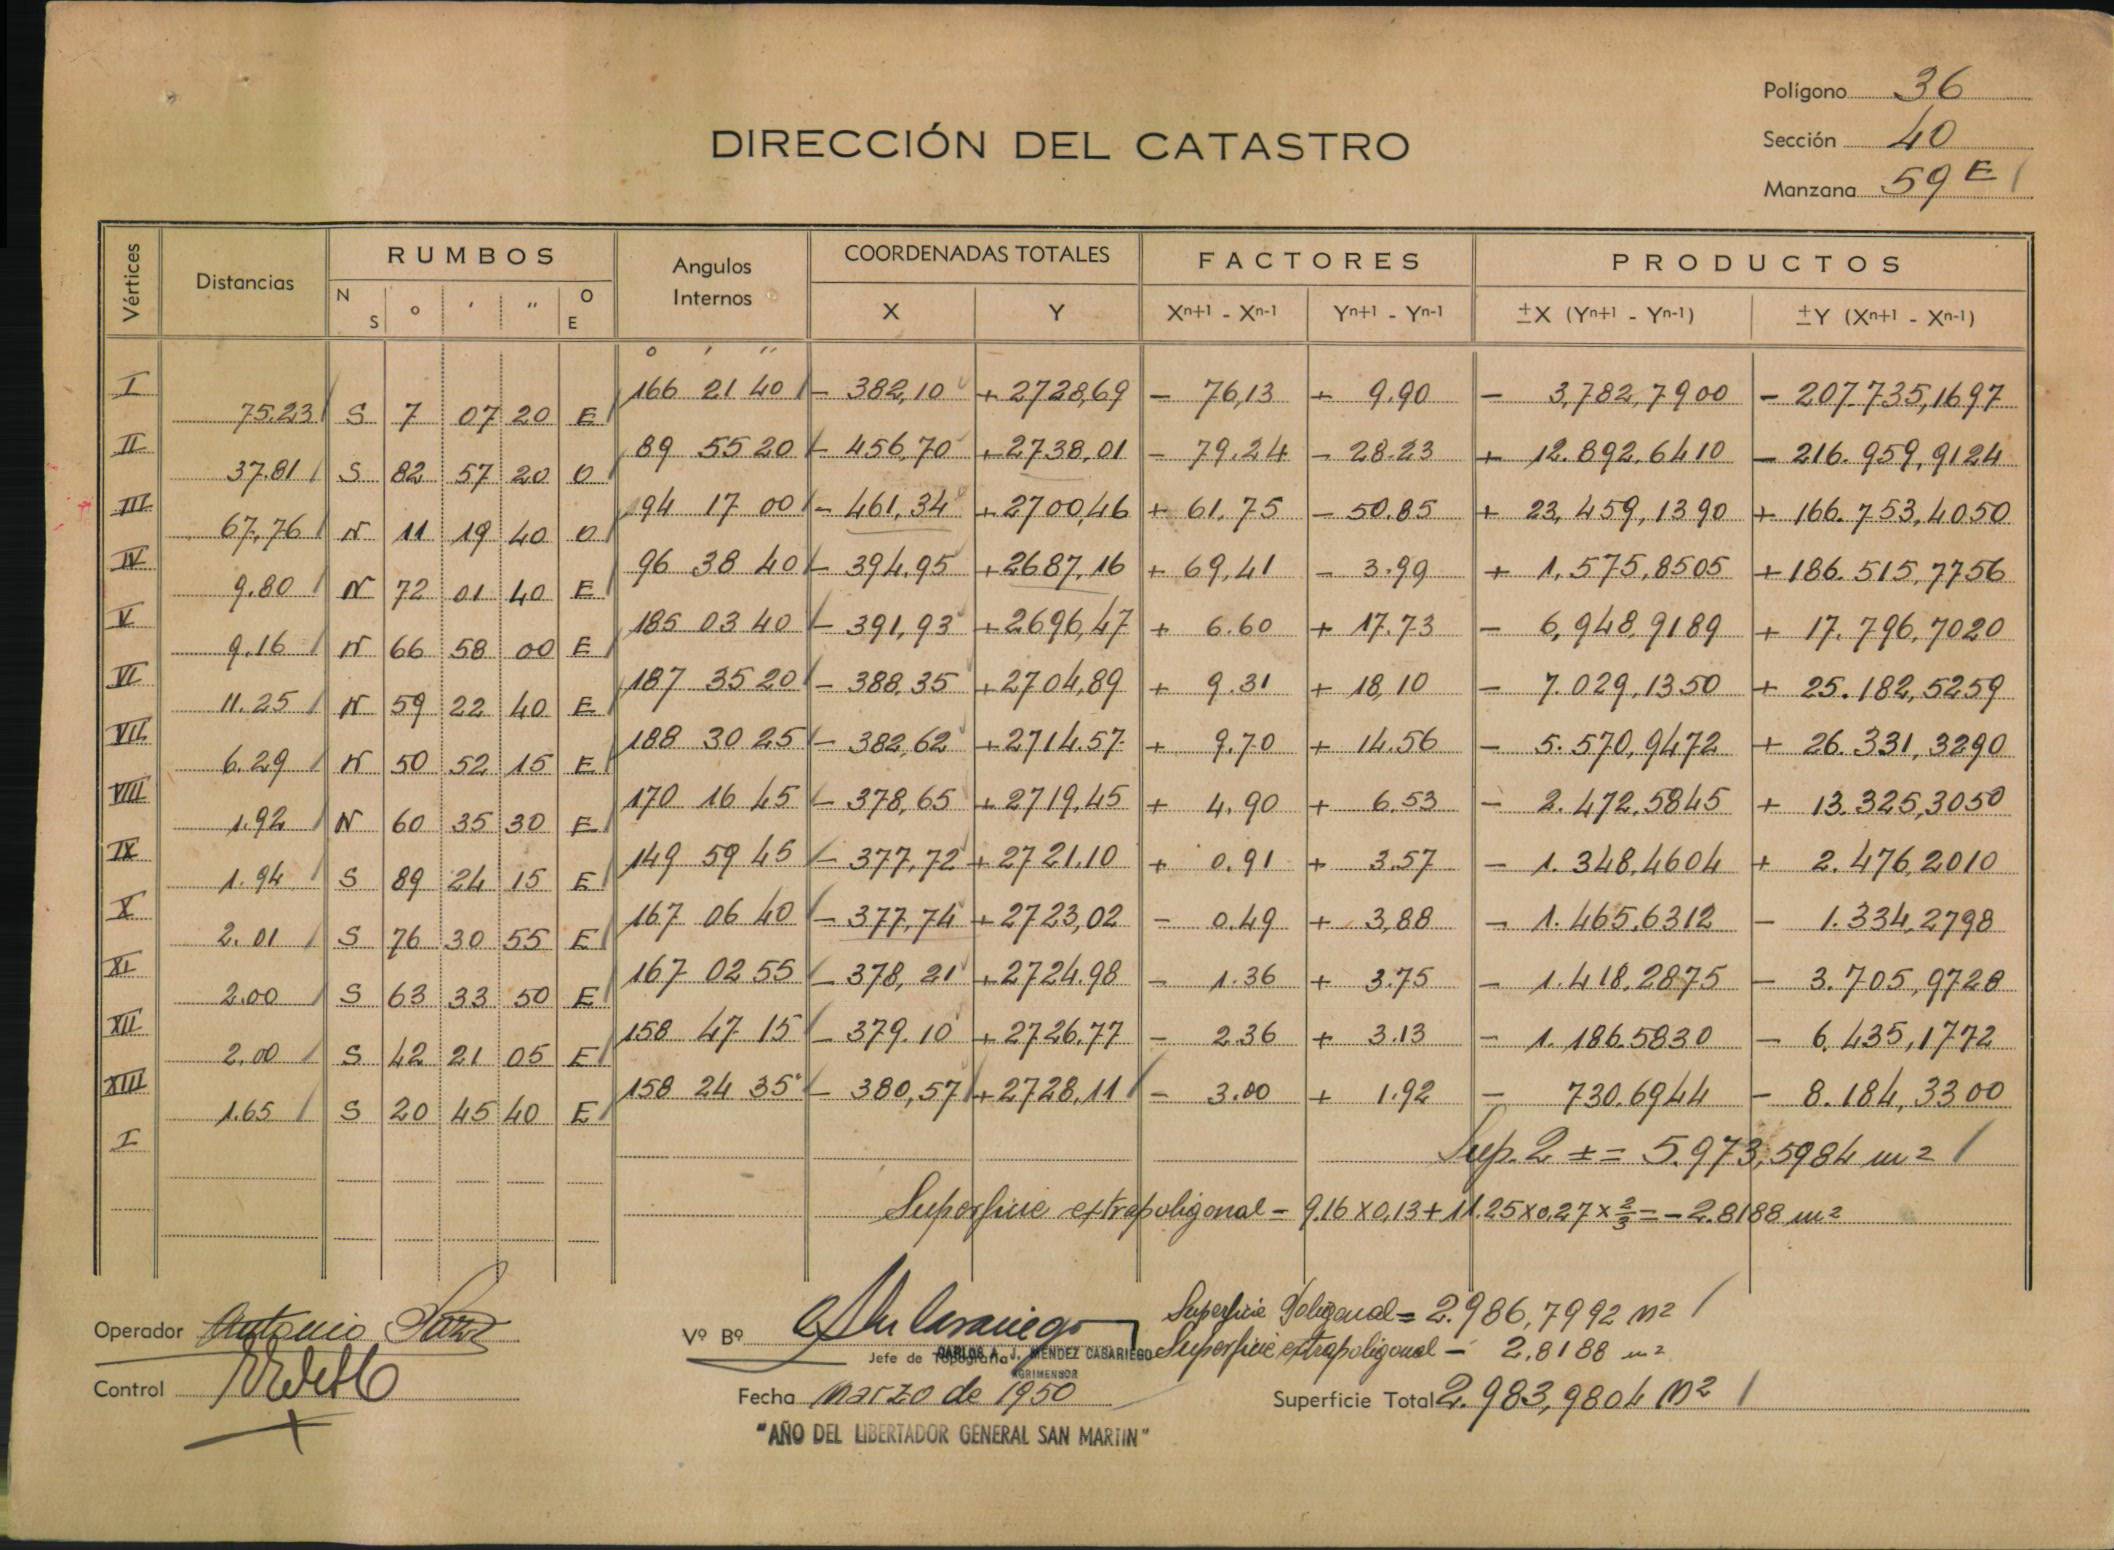 Polígono 36
DIRECCIÓN DEL CATASTRO
Sección 40
Manzana 59 E
Vértices Distancias RUMBOS Angulos Internos COORDENADAS TOTALES FACTORES PRODUCTOS
N S ° ' " O E X Y Xn+1 - Xn-1 Yn+1 - Yn-1 ±X (Yn+1 - Yn-1) ±Y (Xn+1 - Xn-1)
° ' "
I 166 21 40 - 382,10 + 2728,69 - 76,13 + 9.90 - 3,782,7900 - 207.735,1697
75.23 S 7 07 20 E
II 89 55 20 - 456,70 + 2738,01 - 79.24 - 28.23 + 12.892.6410 - 216.959,9124
37.81 S 82 57 20 O
III 94 17 00 - 461,34 + 2700,46 + 61.75 - 50.85 + 23,459,1390 + 166.753,4050
67,76 N 11 19 40 O
IV 96 38 40 - 394,95 + 2687,16 + 69,41 - 3.99 + 1.575,8505 + 186.515,7756
9.80 N 72 01 40 E
V 185 03 40 - 391,93 + 2696,47 + 6.60 + 17.73 - 6,948,9189 + 17.796,7020
9.16 N 66 58 00 E
VI 187 35 20 - 388,35 + 2704,89 + 9.31 + 18,10 - 7.029,1350 + 25.182,5259
11.25 N 59 22 40 E
VII 188 30 25 - 382,62 + 2714.57 + 9.70 + 14.56 - 5.570,9472 + 26.331,3290
6.29 N 50 52 15 E
VIII 170 16 45 - 378,65 + 2719,45 + 4.90 + 6.53 - 2.472,5845 + 13.325,3050
1.92 N 60 35 30 E
IX 149 59 45 - 377,72 + 2721.10 + 0.91 + 3.57 - 1.348,4604 + 2.476,2010
1.94 S 89 24 15 E
X 167 06 40 - 377,74 + 2723,02 - 0.49 + 3,88 - 1.465,6312 - 1.334,2798
2.01 S 76 30 55 E
XI 167 02 55 - 378,21 + 2724.98 - 1.36 + 3.75 - 1.418.2875 - 3.705,9728
2.00 S 63 33 50 E
XII 158 47 15 - 379.10 + 2726.77 - 2.36 + 3.13 - 1.186.5830 - 6.435,1772
2,00 S 42 21 05 E
XIII 158 24 35 - 380,57 + 2728,11 - 3.00 + 1.92 - 730.6944 - 8.184,3300
1.65 S 20 45 40 E
I Sup. 2 ± = 5.973,5984 m2
Superficie extrapoligonal = 9.16 x 0,13 + 11.25 x 0,27 x 2/3 = - 2.8188 m2
Superficie Poligonal = 2.986,7992 m2
Operador Antonio
Vº Bº
Superficie extrapoligonal - 2,8188 m2
Jefe de Topografia
CARLOS A. J. MENDEZ CASARIEGO
AGRIMENSOR
Control
Fecha marzo de 1950
Superficie Total 2.983,9804 m2
"AÑO DEL LIBERTADOR GENERAL SAN MARTIN"